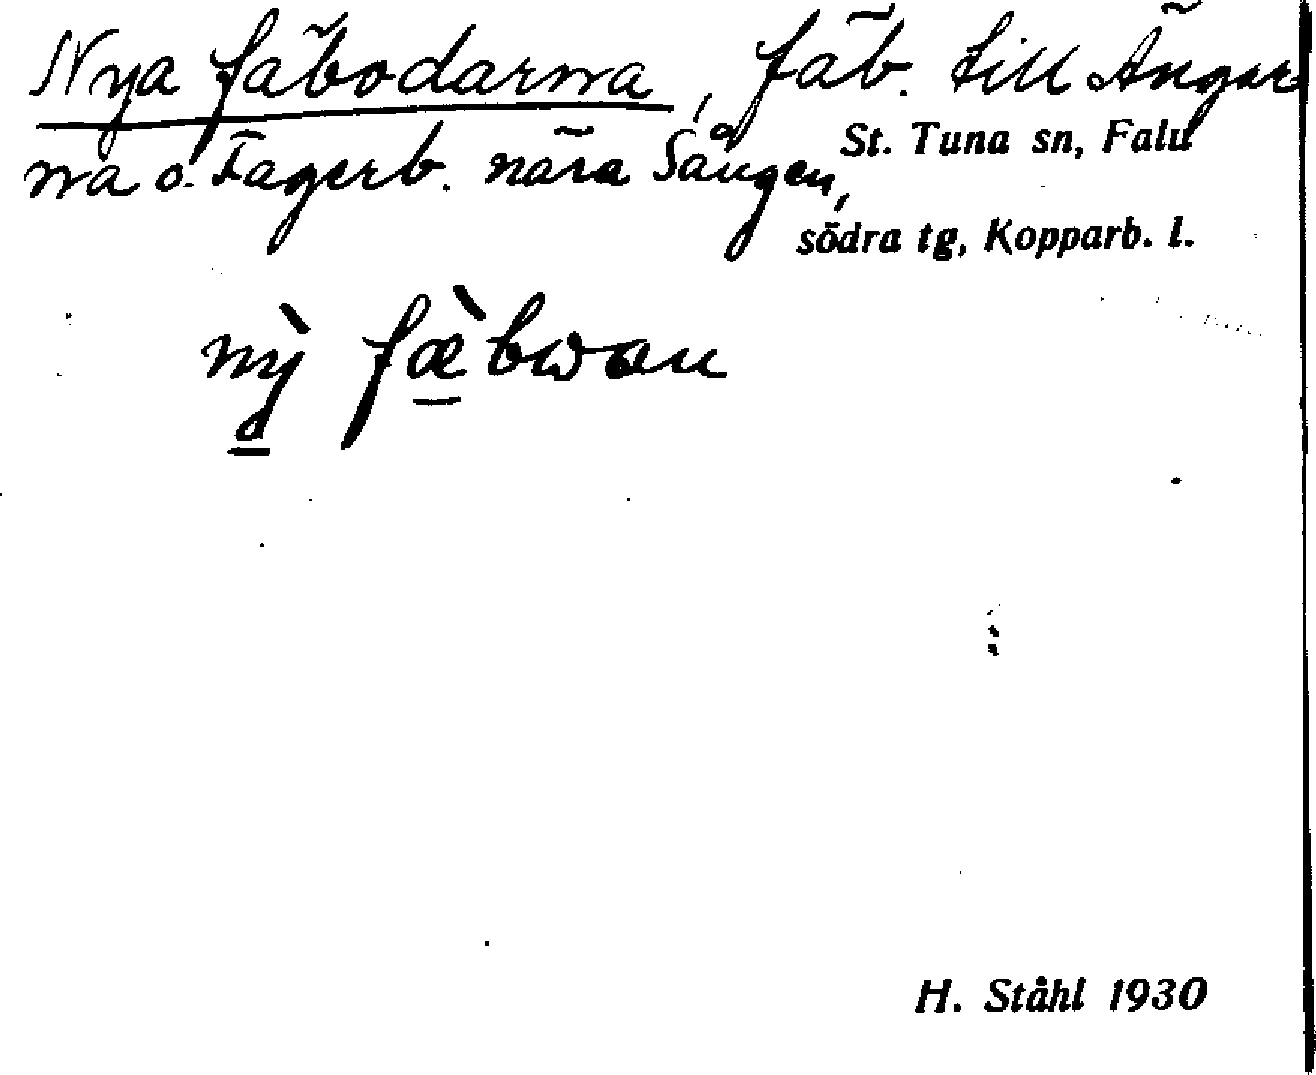 Nya fäbodarna, fäb. till Ängar
na o. Fagerb. nära Sången,
St. Tuna sn, Falu
södra tg, Kopparb. l.
nỳ fæ̀bwan
H. Ståhl 1930